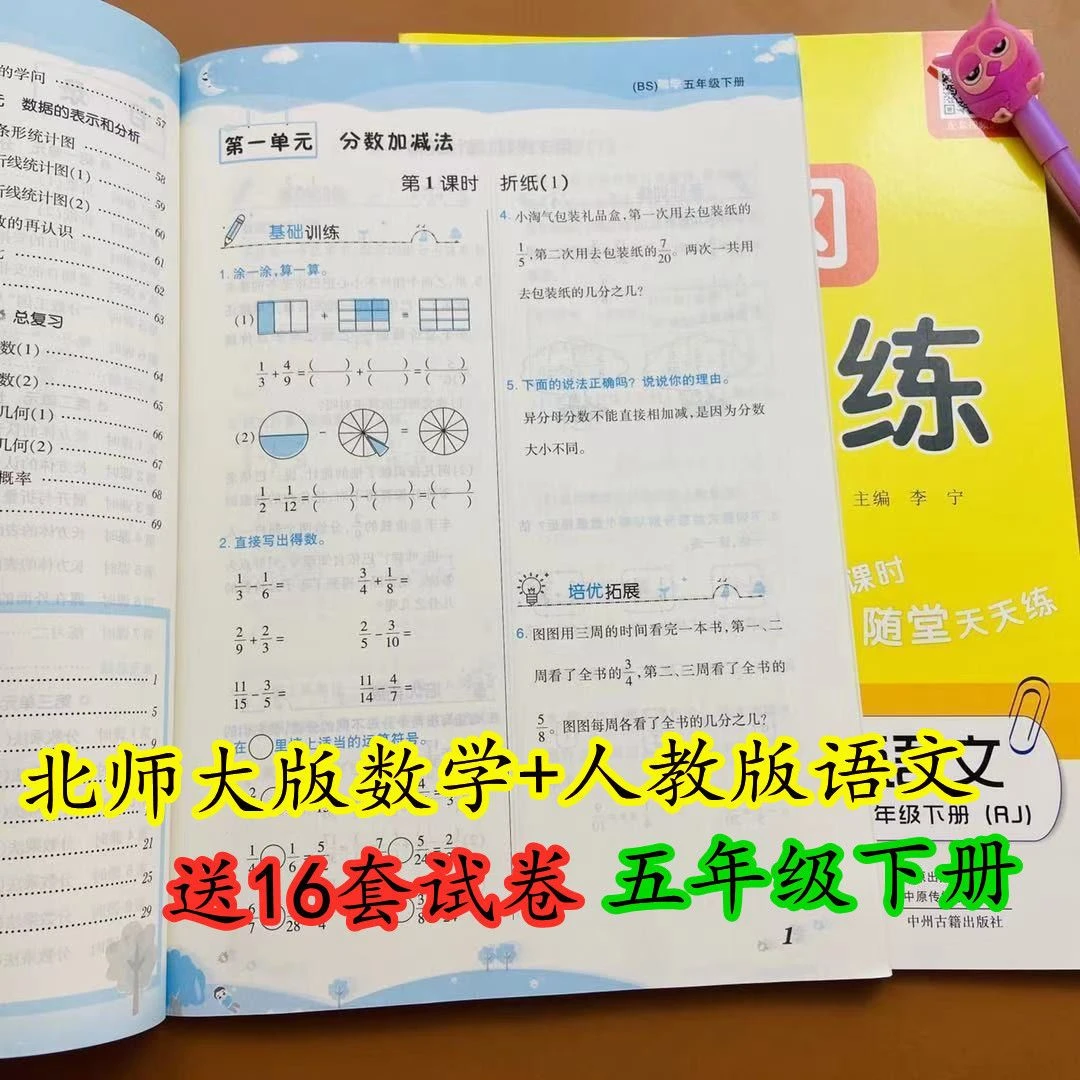 的学问
57
数据的表示和分析
条形统计图
58
折线统计图(1)
59
折线统计图(2)
60
数的再认识
61
62
63
总复习
数(1)
64
数(2)
65
几何(1)
66
几何(2)
67
概率
68
69
1
5
9
21
25
29
(BS)数学五年级下册
第一单元 分数加减法
第1课时 折纸(1)
基础训练
1.涂一涂,算一算。
(1) + =
1/3+4/9=( )/( )+( )/( )=( )/( )
(2) − =
1/2−1/12=( )/( )−( )/( )=( )/( )
2.直接写出得数。
1/3−1/6= 3/4+1/8=
2/9+2/3= 2/5−3/10=
11/15−3/5= 11/14−4/7=
在○里填上适当的运算符号。
4.小淘气包装礼品盒,第一次用去包装纸的
1/5,第二次用去包装纸的7/20。两次一共用
去包装纸的几分之几?
5.下面的说法正确吗?说说你的理由。
异分母分数不能直接相加减,是因为分数
大小不同。
培优拓展
6.图图用三周的时间看完一本书,第一、二
周看了全书的3/4,第二、三周看了全书的
5/8。图图每周各看了全书的几分之几?
1
练
主编 李宁
课时
随堂天天练
语文
年级下册(RJ)
中原传
中州古籍出版社
北师大版数学+人教版语文
送16套试卷 五年级下册